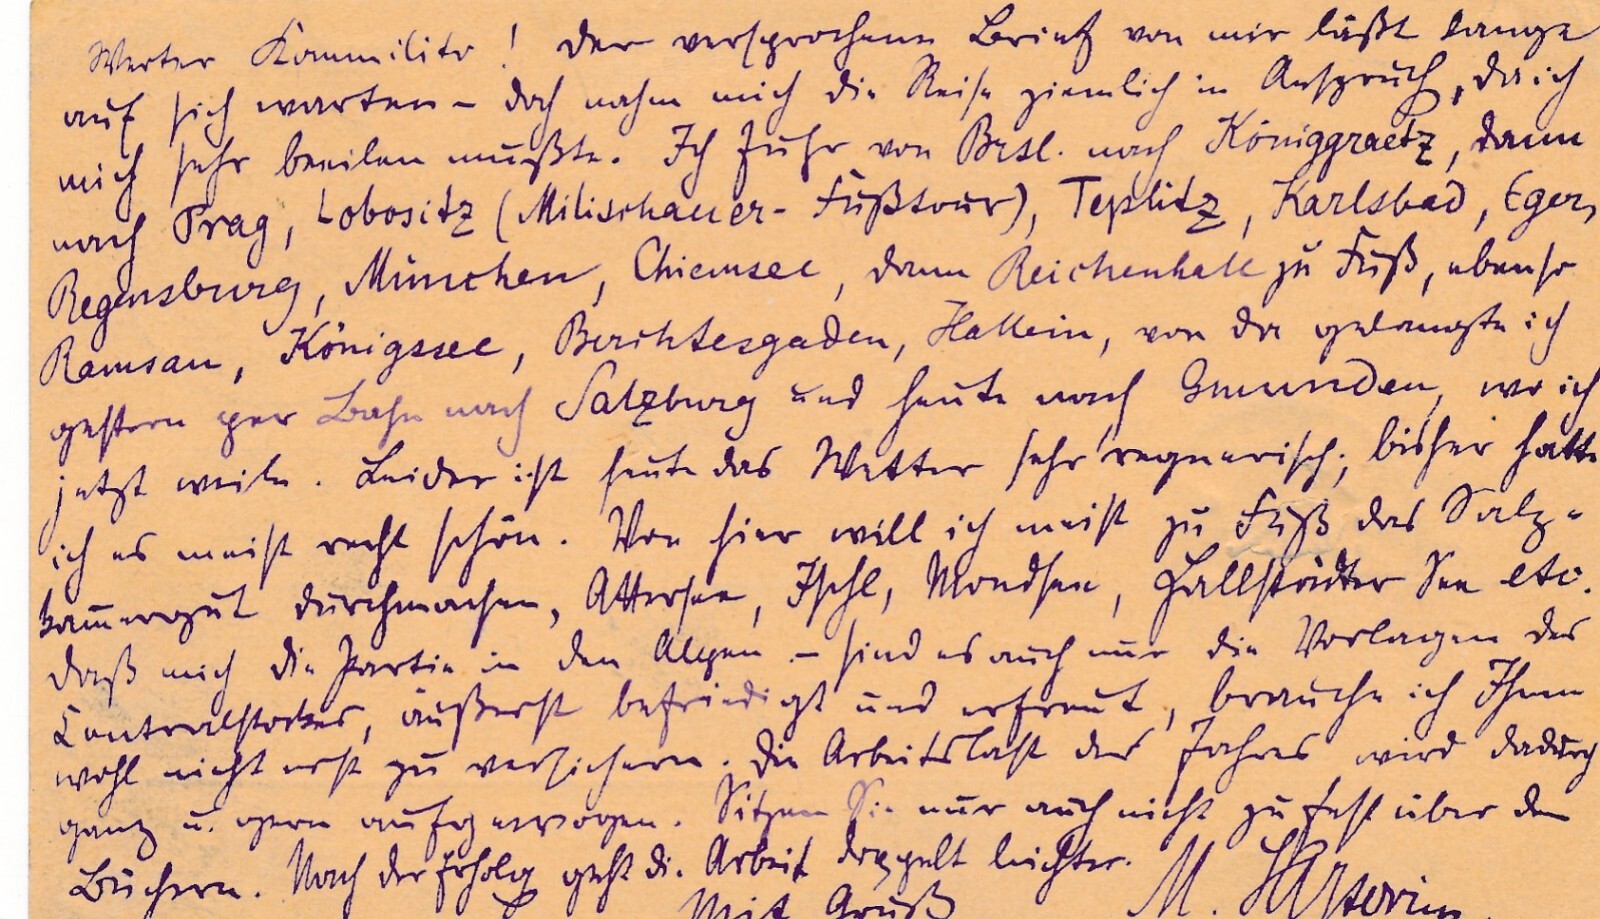 Werter Kommilito! Der versprochene Brief von mir läßt lange
auf sich warten – doch nahm mich die Reise ziemlich in Anspruch, da ich
mich sehr beeilen mußte. Ich fuhr von Brsl. nach Königgraetz, dann
nach Prag, Lobositz (Milischauer-Fußtour), Teplitz, Karlsbad, Eger,
Regensburg, München, Chiemsee, dann Reichenhall zu Fuß, ebenso
Ramsau, Königssee, Berchtesgaden, Hallein, von da gelangte ich
gestern per Bahn nach Salzburg und heute nach Gmunden, wo ich
jetzt weile. Leider ist heute das Wetter sehr regnerisch; bisher hatte
ich es meist recht schön. Von hier will ich meist zu Fuß das Salz-
kam̅ergut durchmachen, Attersee, Ischl, Mondsee, Hallstädter See etc.
daß mich die Partie in den Alpen – sind es auch nur die Vorlagen des
Centralstockes, äußerst befriedigt und erfreut, brauche ich Ihnen
wohl nicht erst zu versichern. Die Arbeitslast des Jahres wird dadurch
ganz u. gern aufgewogen. Sitzen Sie nur auch nicht zu fest über den
Büchern. Nach der Erholg geht die Arbeit doppelt leichter.
Mit Gruß M.